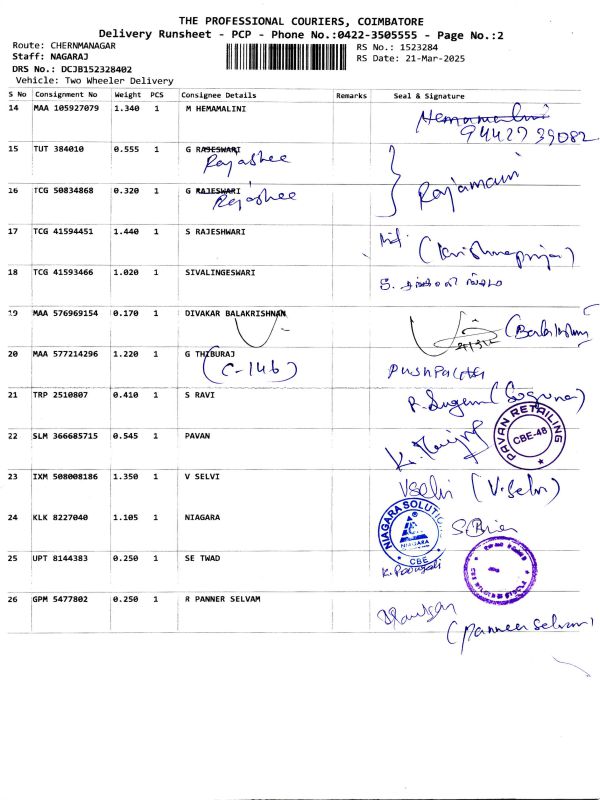 THE PROFESSIONAL COURIERS, COIMBATORE
Delivery Runsheet - PCP - Phone No.:0422-3505555 - Page No.:2
Route: CHERNMANAGAR
Staff: NAGARAJ
DRS No.: DCJB152328402
Vehicle: Two Wheeler Delivery
RS No.: 1523284
RS Date: 21-Mar-2025
S No Consignment No Weight PCS Consignee Details Remarks Seal & Signature
14 MAA 105927079 1.340 1 M HEMAMALINI Hemamalini
9442739082
15 TUT 384010 0.555 1 G RAJESWARI
Rajashee
16 TCG 50834868 0.320 1 G RAJESWARI Rajamani
Rajashee
17 TCG 41594451 1.440 1 S RAJESHWARI (Krishnapriya)
18 TCG 41593466 1.020 1 SIVALINGESWARI
19 MAA 576969154 0.170 1 DIVAKAR BALAKRISHNAN
20 MAA 577214296 1.220 1 G THIBURAJ
(C-146)
21 TRP 2510807 0.410 1 S RAVI
22 SLM 366685715 0.545 1 PAVAN
PAVAN RETAILING
CBE-48
23 IXM 508008186 1.350 1 V SELVI Vselvi (V.Selvi)
24 KLK 8227040 1.105 1 NIAGARA
NIAGARA SOLUTION
NIAGARA
CBE
25 UPT 8144383 0.250 1 SE TWAD
26 GPM 5477802 0.250 1 R PANNER SELVAM
(Panneer Selvam)